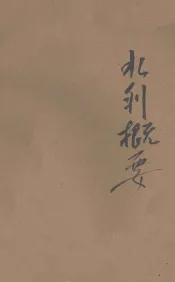 水利概要